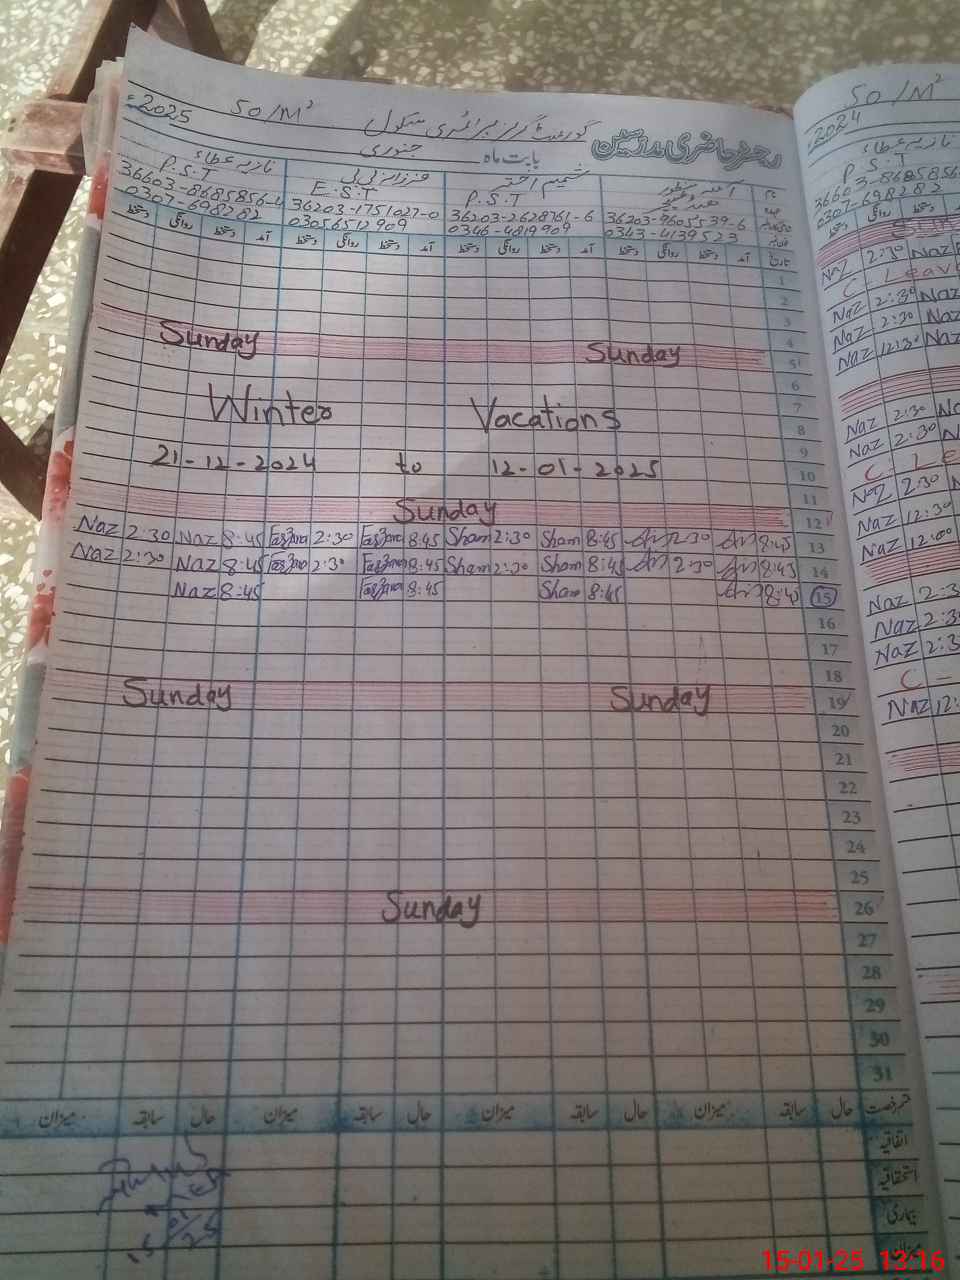 رجسٹر حاضری مدرسین گورنمنٹ گرلز پرائمری سکول 50/M² 2025
بابت ماہ جنوری
نام آمنہ منظور شمیم اختر فرزانہ بی بی نازیہ عطاء
P.S.T E.S.T P.S.T
36203-9605539-6 36203-2628761-6 36203-1751027-0 36603-8685856-4
0343-4139523 0346-4819909 03056512909 0307-698282
تاریخ آمد دستخط روانگی دستخط آمد دستخط روانگی دستخط آمد دستخط روانگی دستخط آمد دستخط روانگی دستخط
1
2
3
4
Sunday Sunday 5
6
Winter Vacations 7
8
9
21-12-2024 to 12-01-2025 10
11
Sunday 12
Naz 2:30 Naz 8:45 Farzana 2:30 Farzana 8:45 Sham 2:30 Sham 8:45 2:30 8:45 13
Naz 2:30 Naz 8:45 Farzana 2:30 Farzana 8:45 Sham 2:30 Sham 8:45 2:30 8:45 14
Naz 8:45 Farzana 8:45 Sham 8:45 8:45 15
16
17
18
Sunday Sunday 19
20
21
22
23
24
25
Sunday 26
27
28
29
30
31
قسم رخصت حال سابقہ میزان حال سابقہ میزان حال سابقہ میزان حال سابقہ میزان
اتفاقیہ
استحقاقیہ
بیماری
میزان
50/M²
2024
نازیہ عطاء
P.S.T
36603-8685856
0307-698282
Naz 2:30 Naz
C. Leave
Naz 2:30 Naz
Naz 2:30 Naz
Naz 12:30 Naz
Naz 2:30 Na
Naz 2:30 N
C. Le
Naz 2:30
Naz 12:30
Naz 12:00
Naz 2:3
Naz 2:30
Naz 2:3
C -
Naz 12:
15-01-25 13:16